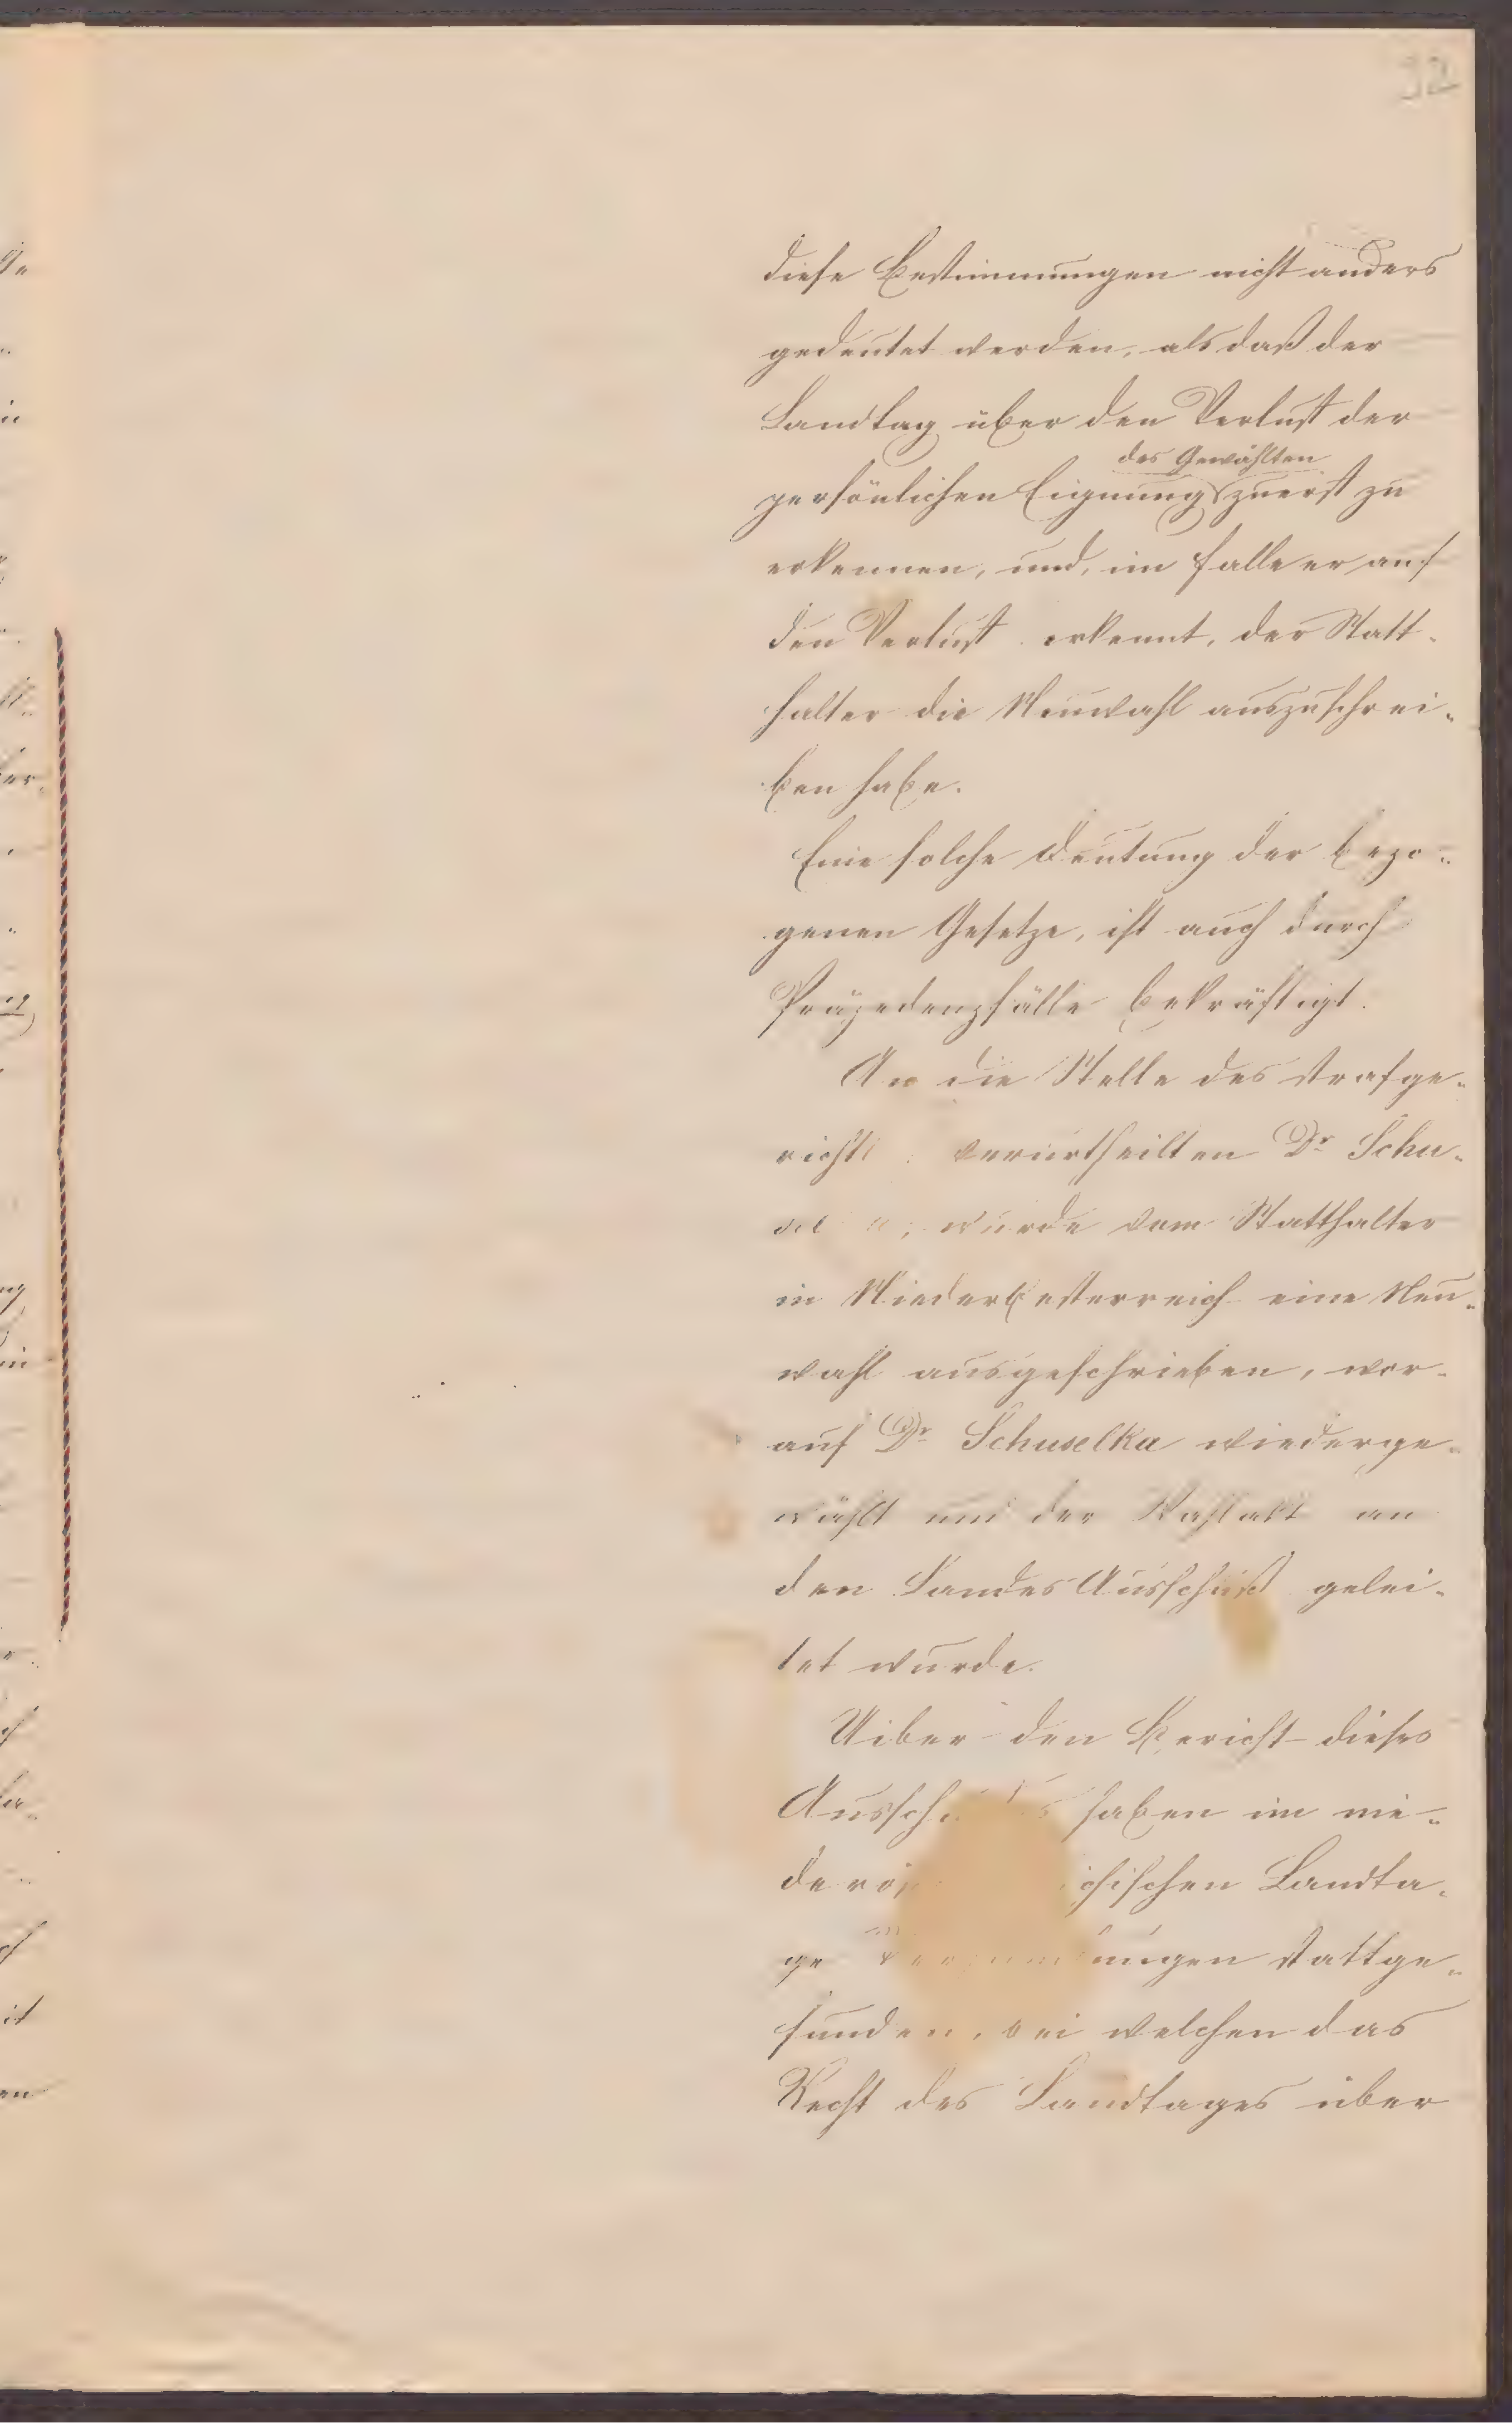 92
diese Bestimmungen nicht anders
gedeutet werden, als daß der
Landtag über den Verlust der
des Gewählten
persönlichen Eignung zuerst zu
erkennen, und, im Falle er auf
den Verlust erkennt, der Statt-
halter die Neuwahl auszuschrei-
ben habe.
Eine solche Deutung der bezo-
genen Gesetze, ist auch durch
Präzedenzfälle bekräftigt.
An die Stelle des strafge-
richtl. verurtheilten Dr Schu-
wurde vom Statthalter
in Niederoesterreich eine Neu-
wahl ausgeschrieben, wor-
auf Dr Schuselka wiederge-
wählt und der Wahlakt an
den Landes Ausschuß gelei-
tet wurde.
Uiber den Bericht dieses
haben im nie-
Landta-
ge stattge-
funden, bei welchen das
Recht des Landtages über